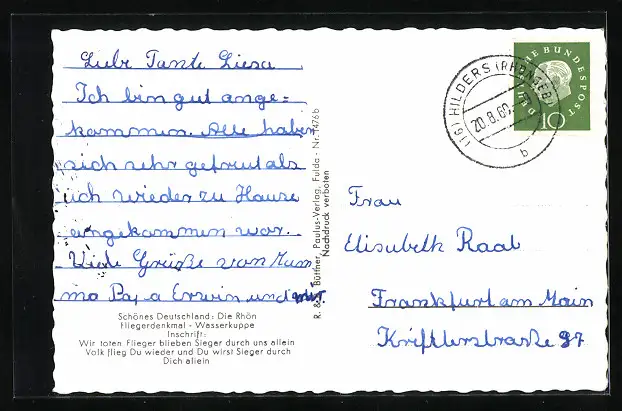 Liebe Tante Liesa
Ich bin gut ange=
kommen. Alle haben
sich sehr gefreut als
ich wieder zu Hause
eingekommen war.
Viele Grüße von Mam
ma Papa Erwin und mir.
Schönes Deutschland: Die Rhön
Fliegerdenkmal - Wasserkuppe
Inschrift:
Wir toten Flieger blieben Sieger durch uns allein
Volk flieg Du wieder und Du wirst Sieger durch
Dich allein
Büttner, Paulus-Verlag, Fulda - Nr. 1476b
Nachdruck verboten
(16) HILDERS (RHÖN)
20.8.60
b
DEUTSCHE BUNDESPOST
10
Frau
Elisabeth Raab
Frankfurt am Main
Kriftlerstraße 97